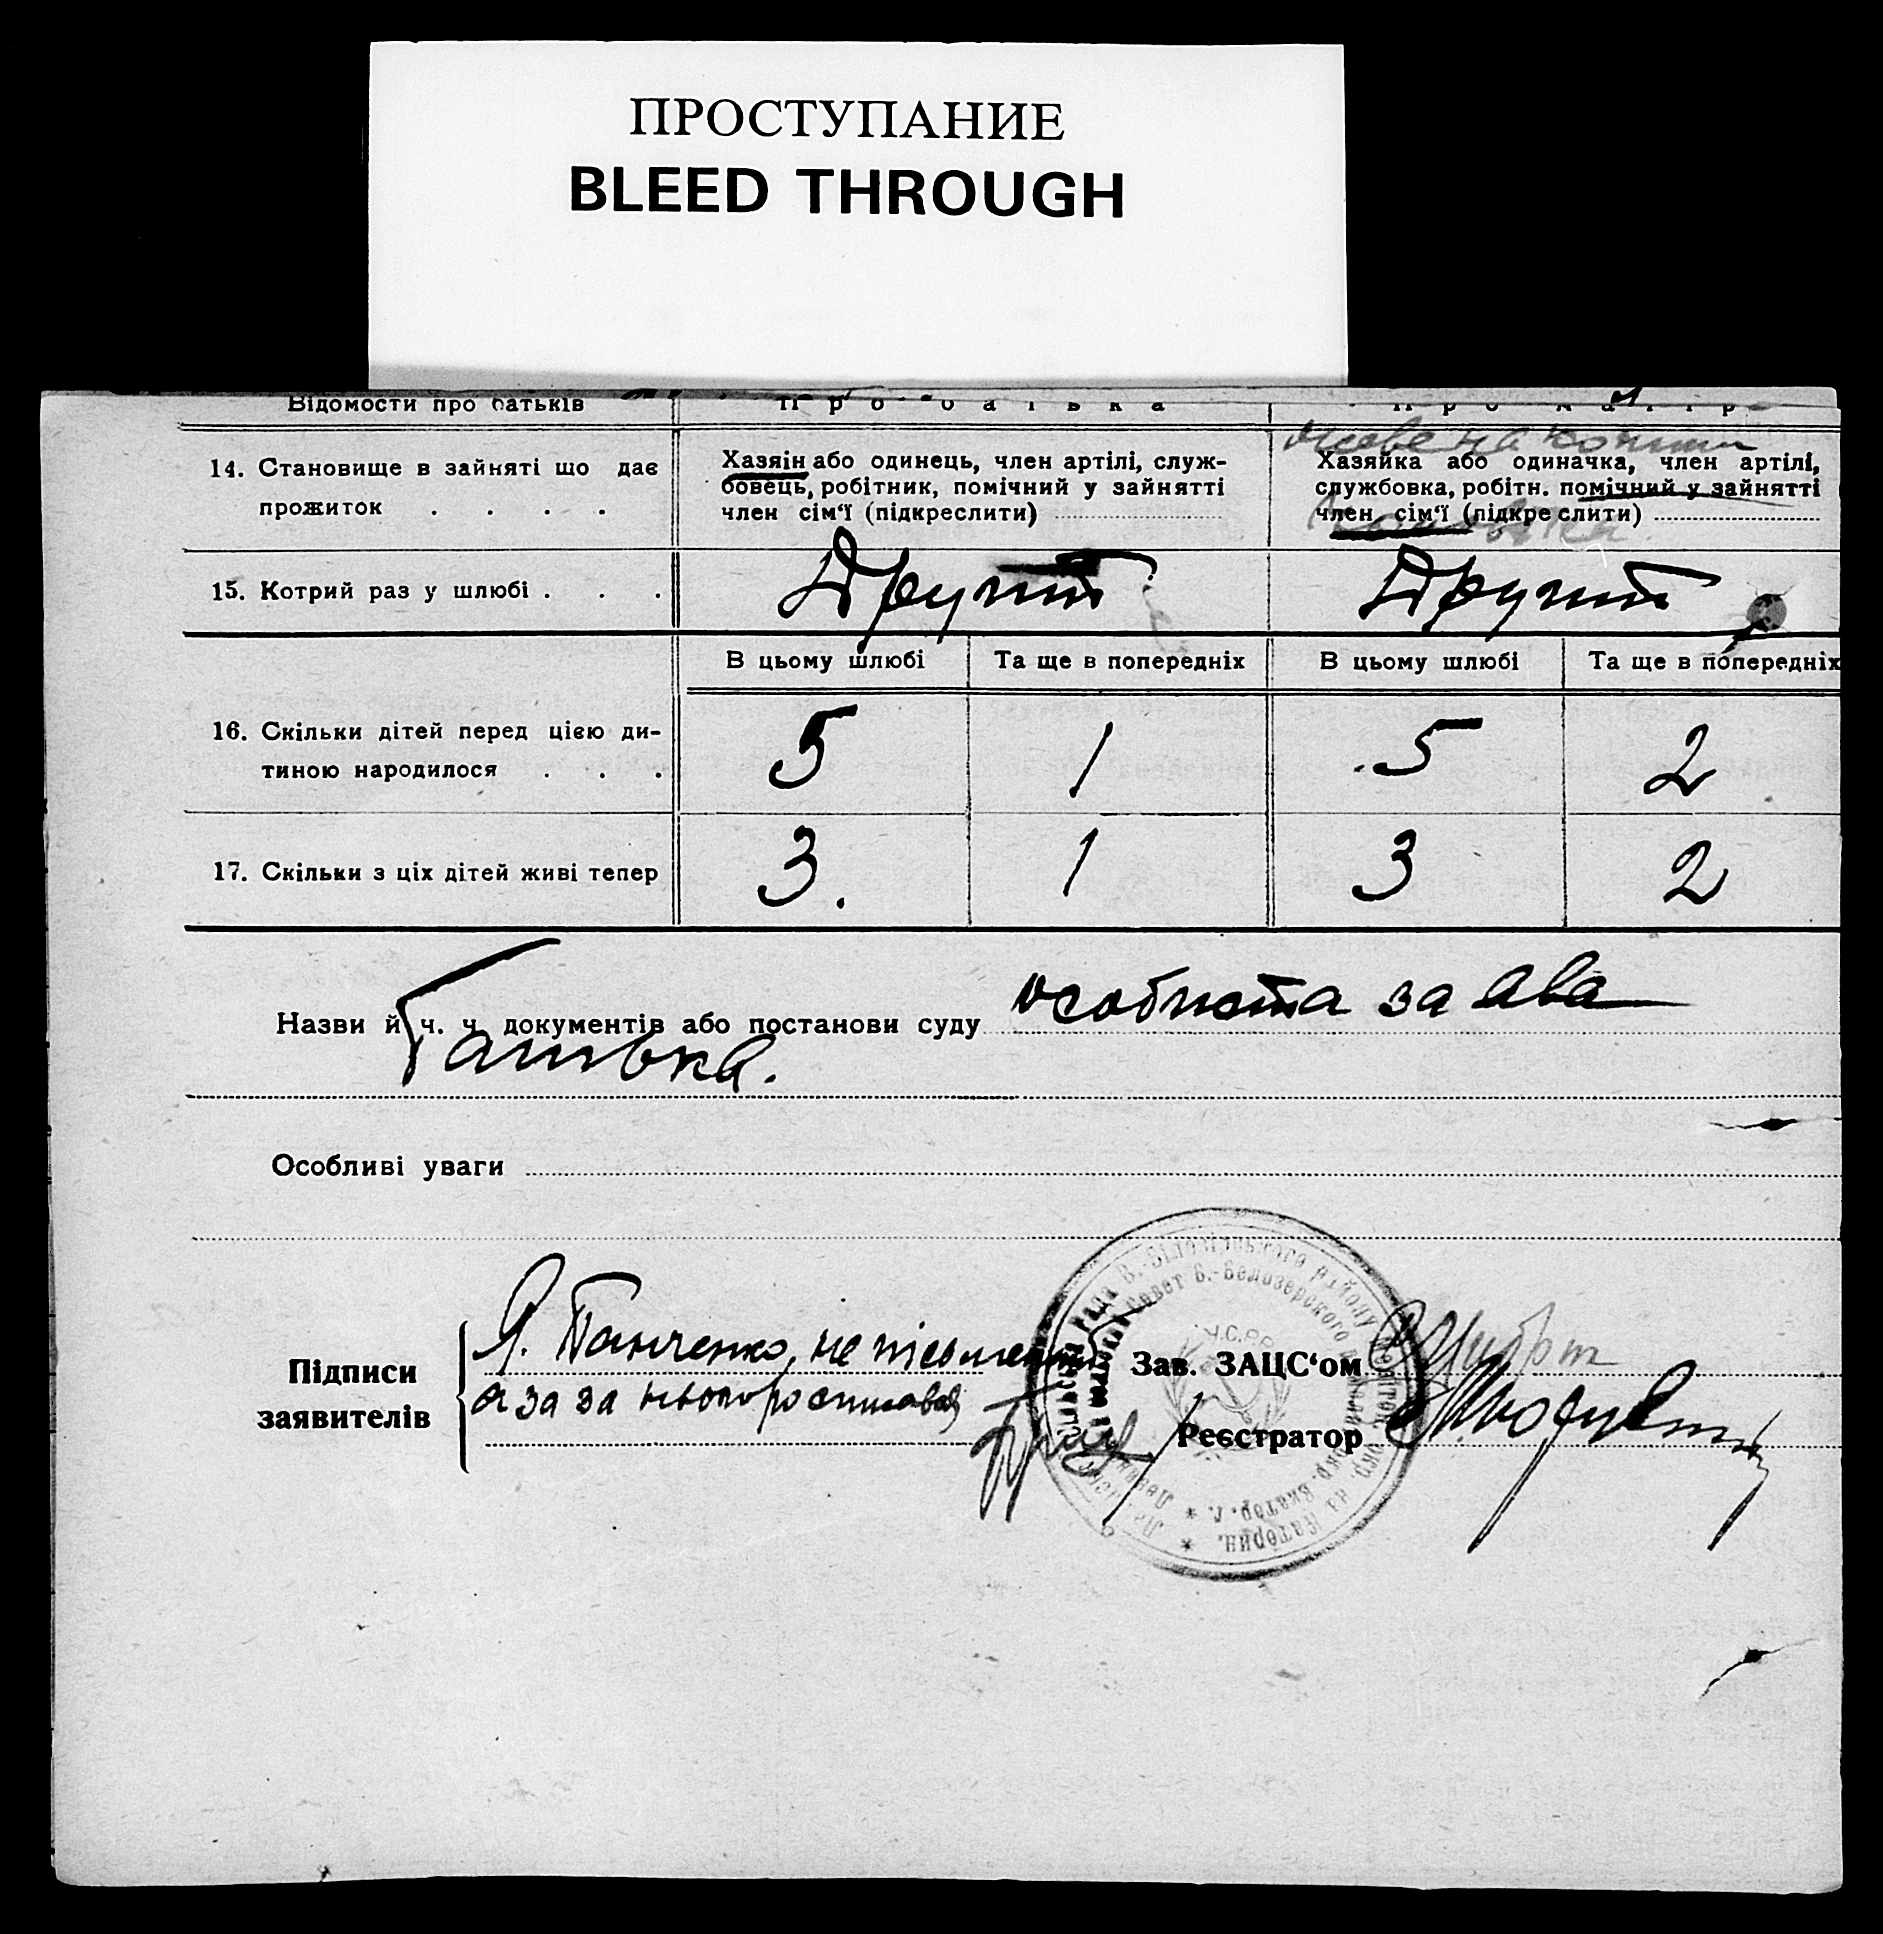 ПРОСТУПАНИЕ
BLEED THROUGH
Відомости про батьків
Про батька
Про матір
14. Становище в зайняті що дає
прожиток . . . .
Хазяін або одинець, член артілі, служ-
бовець, робітник, помічний у зайнятті
член сім'ї (підкреслити)
живе на кошти
Хазяйка або одиначка, член артілі,
службовка, робітн. помічний у зайнятті
член сім'ї (підкреслити)
15. Котрий раз у шлюбі . . .
Другий
Другий
В цьому шлюбі
Та ще в попередніх
В цьому шлюбі
Та ще в попередніх
16. Скільки дітей перед цією ди-
тиною народилося . . .
5
1
5
2
17. Скільки з ціх дітей живі тепер
3.
1
3
2
Назви й ч. ч. документів або постанови суду особиста заява
Батька.
Особливі уваги
Підписи
заявителів
Я. Панченко, не письменний
а за за нього росписався
Зав. ЗАЦС'ом
Реєстратор
рада В.-Білозірського району
Совет В.-Белозерского
У.С.Р.Р.